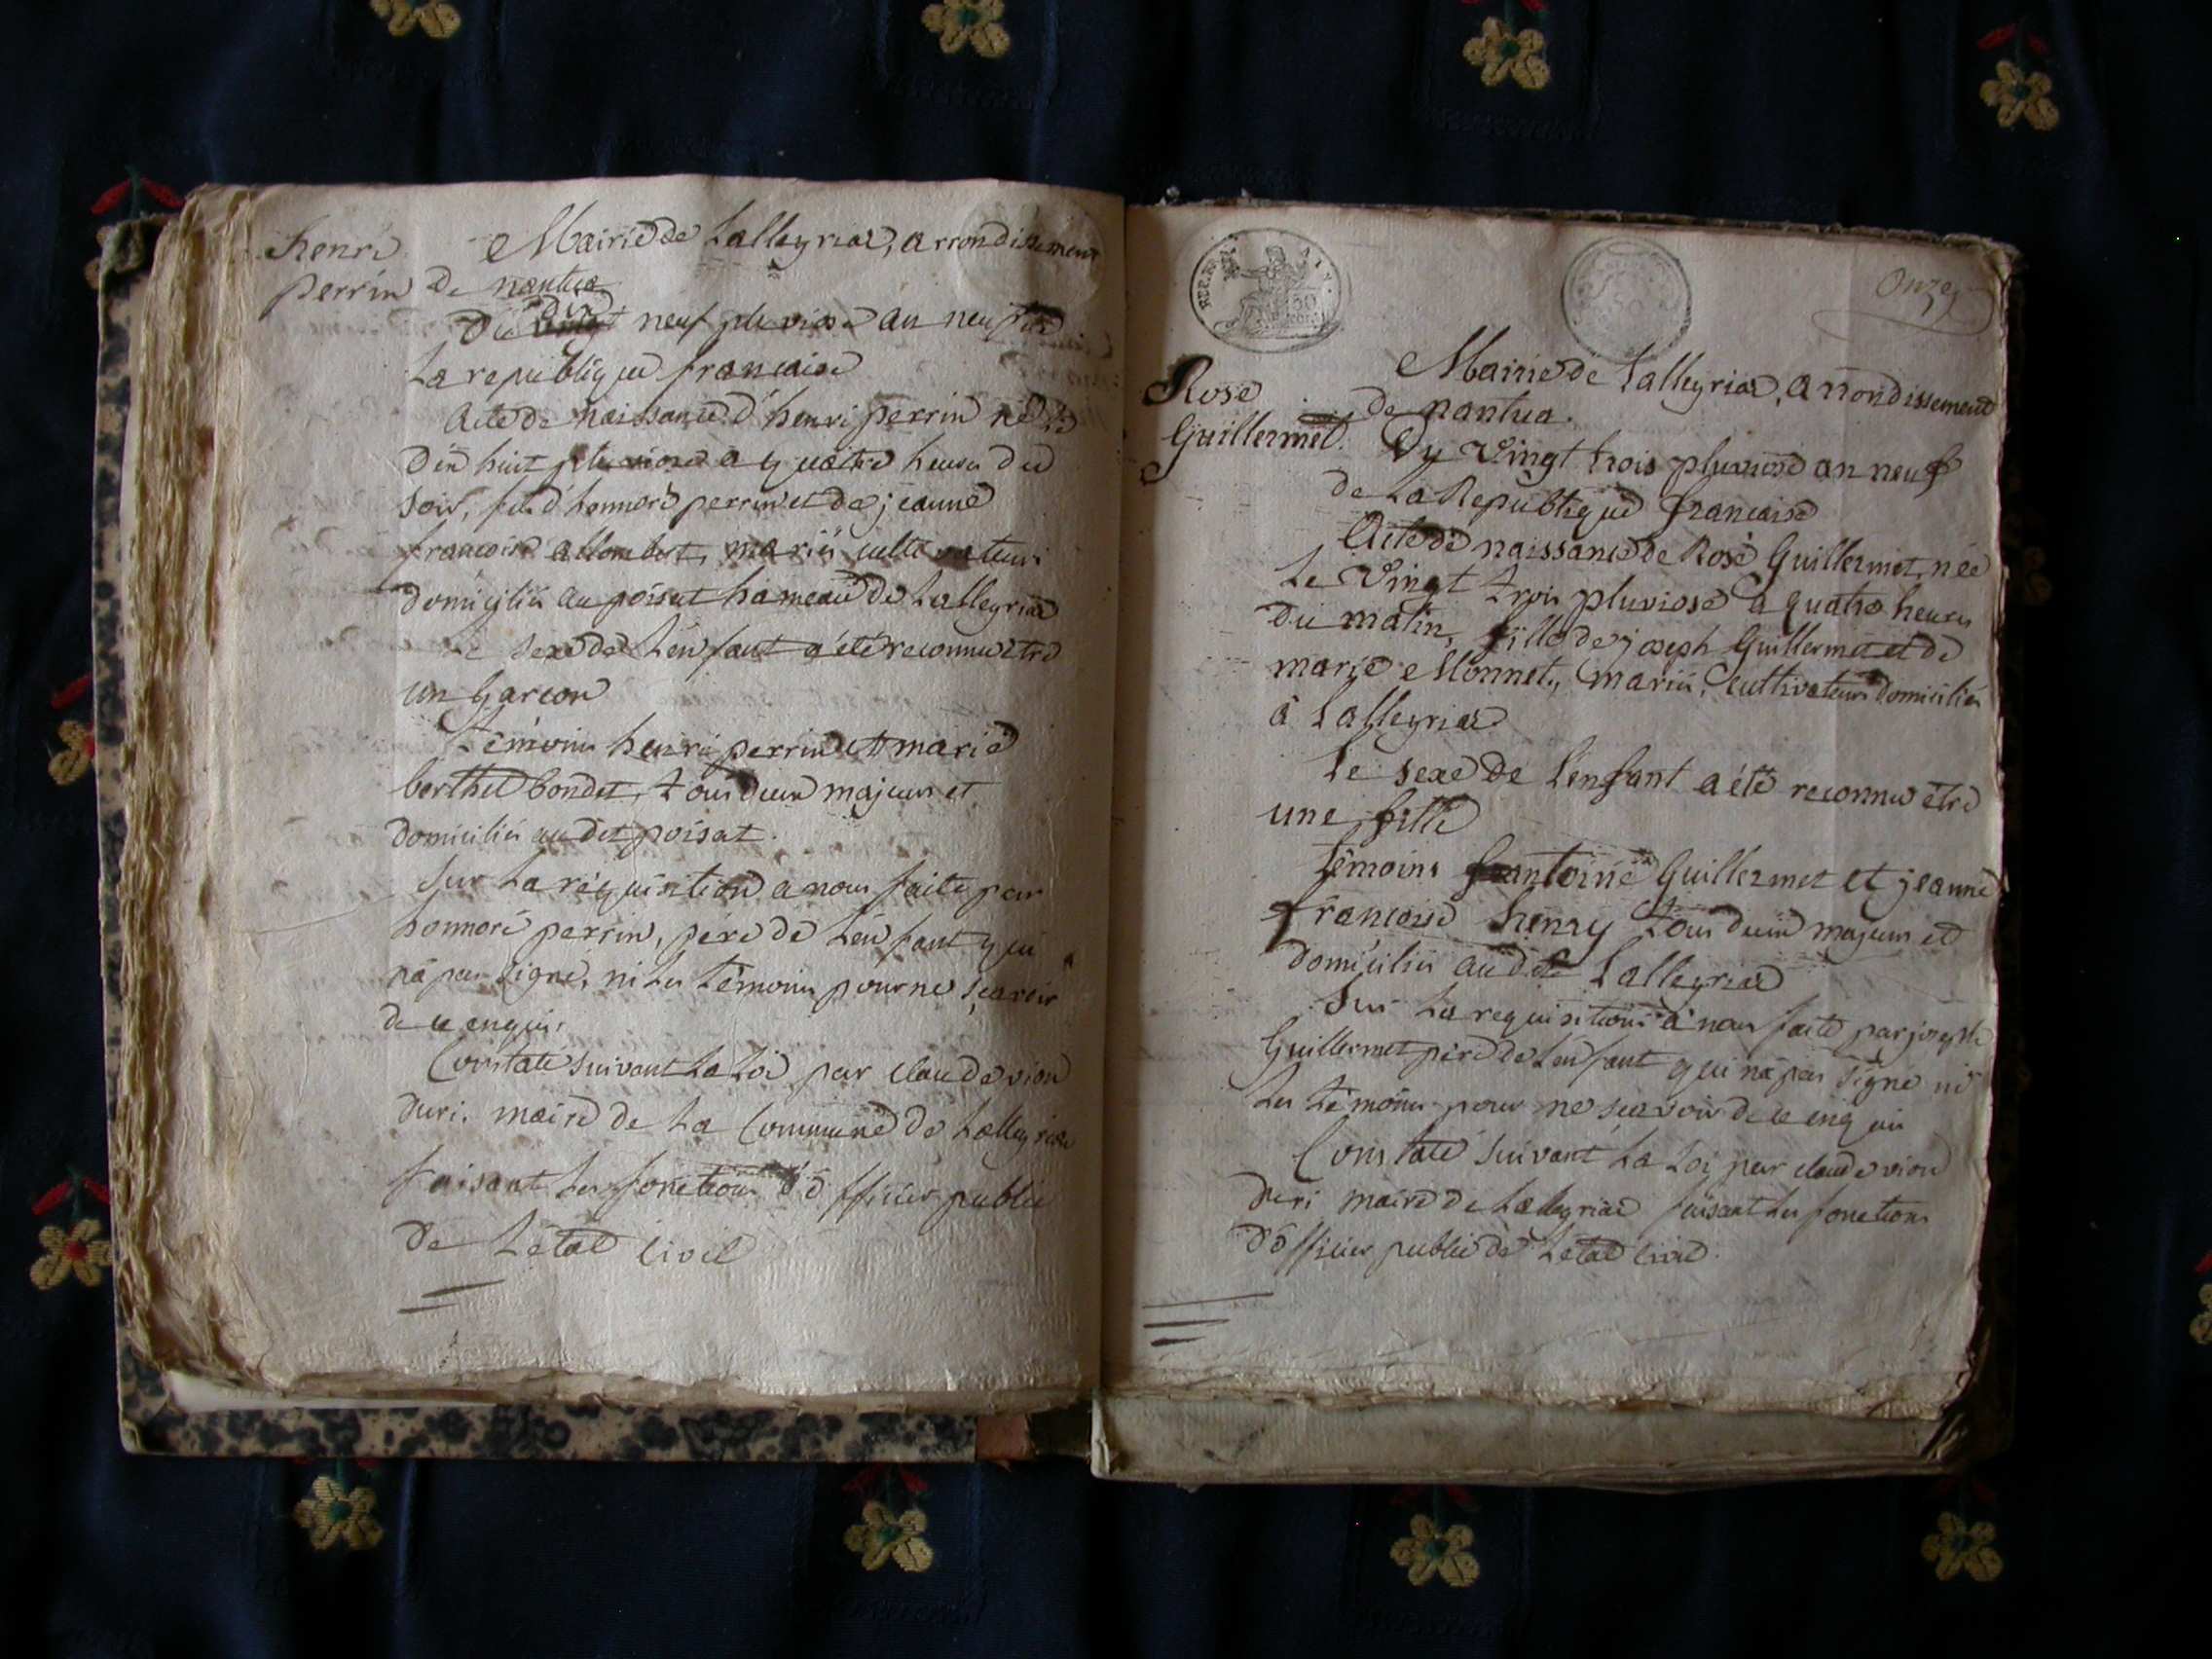 henri
perrin
Mairie de Lalleyriat, arrondissement
de nantua
Du dix neuf pluviose an neuf de
La republique francaise
Acte de naissance d'henri perrin né le
dix huit pluviose a quatre heures du
soir, fils d'honnoré perrin et de jeanne
francoise allombert, mariés cultivateurs
domiciliés au poisat hameau de Lalleyriat
Le sexe de L'enfant a été reconnu etre
un garcon
témoins henri perrin et marie
berthet bondet, tous deux majeurs et
domiciliés au dit poisat.
Sur La réquisition a nous faite par
honnoré perrin, père de L'enfant qui
n'a pas signé, ni les témoins pour ne scavoir
de ce enquis
Constaté suivant La Loi par claude vion
duri, maire de La Commune de Lalleyriat
faisant les fonctions d'officier public
de L'état civil
REP. FRA
50
Onze
Rose
Guillermet.
Mairie de Lalleyriat, arrondissement
de nantua.
Dy Vingt trois pluviose an neuf
de La Republique francaise
Acte de naissance de Rose Guillermet, née
Le Vingt trois pluviose a quatre heures
du matin, fille de joseph Guillermet et de
marie Monnet, mariés, cultivateurs domiciliés
à Lalleyriat
Le sexe de L'enfant a été reconnu être
une fille
témoins antoine Guillermet et jeanne
francoise henry tous deux majeurs et
domiciliés au dit Lalleyriat
Sur La requisition à nous faite par joseph
Guillermet père de L'enfant qui n'a pas signé ni
les témoins pour ne scavoir de ce enquis
Constaté suivant La Loi par claude vion
duri maire de Lalleyriat faisant les fonctions
d'officier public de L'état civil.